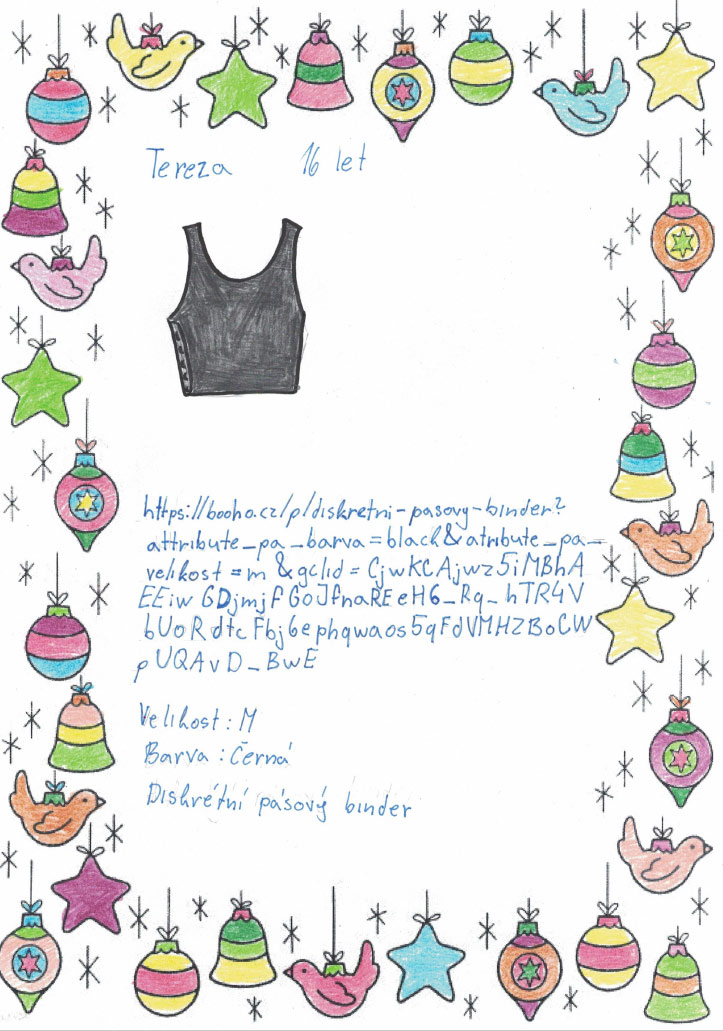 Tereza 16 let
https://booho.cz/p/diskretni-pasovy-binder?
attribute_pa_barva=black&atribute_pa_
velikost=m&gclid=CjwKCAjwz5iMBhA
EEiwGDjmjfGoJfnaREeH6_Rq_hTR4V
bUoRdtcFbj6ephqwaos5qFdVMHZBoCW
pUQAvD_BwE
Velikost: M
Barva: Černá
Diskrétní pásový binder